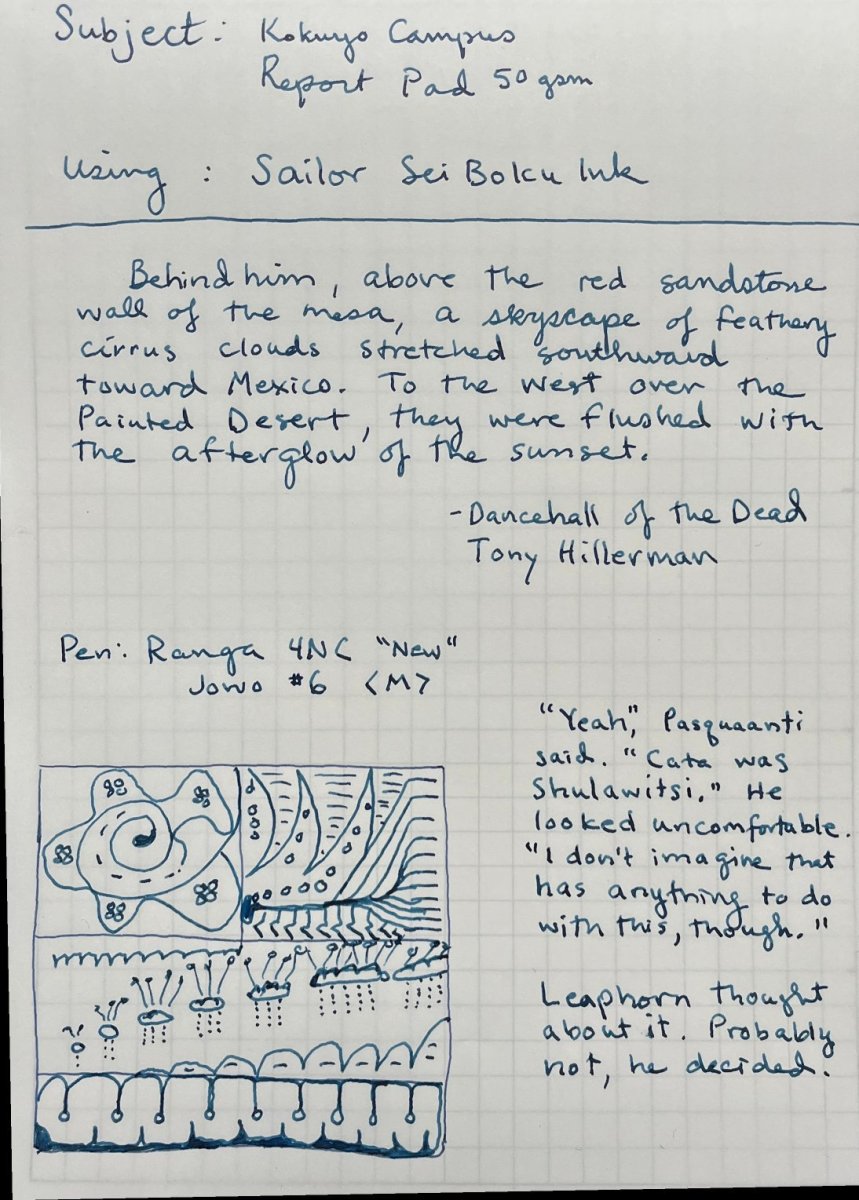 Subject: Kokuyo Campus
Report Pad 50 gsm
Using : Sailor Sei Boku Ink
Behind him, above the red sandstone
wall of the mesa, a skyscape of feathery
cirrus clouds stretched southward
toward Mexico. To the west over the
Painted Desert, they were flushed with
the afterglow of the sunset.
-Dancehall of the Dead
Tony Hillerman
Pen: Ranga 4NC "New"
Jowo #6 <M>
"Yeah," Pasquaanti
said. "Cata was
Shulawitsi." He
looked uncomfortable.
"I don't imagine that
has anything to do
with this, though."
Leaphorn thought
about it. Probably
not, he decided.